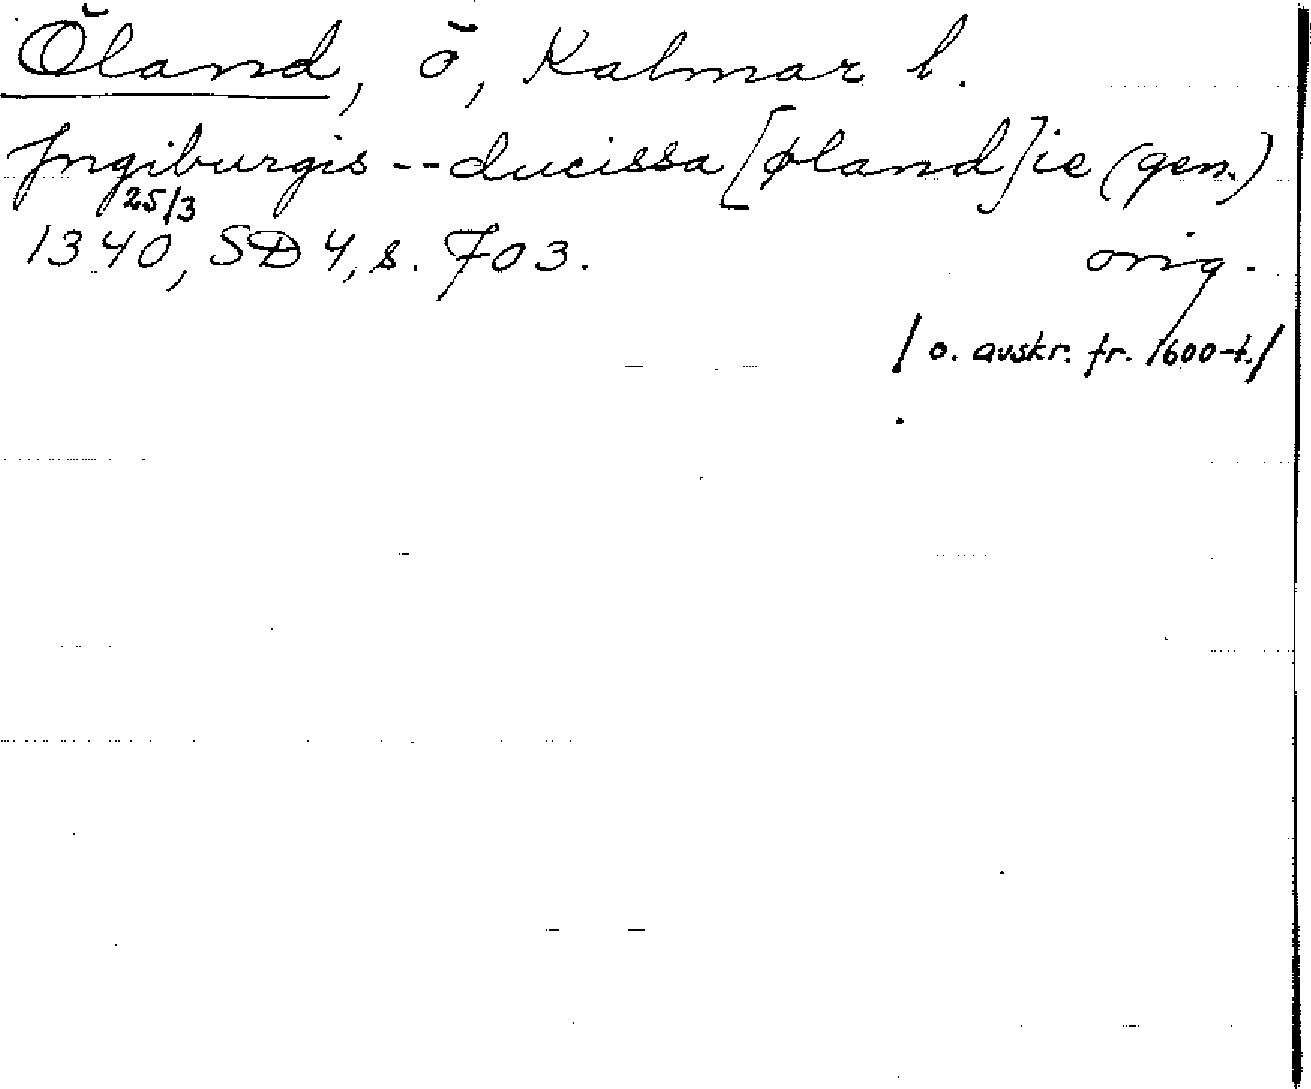 Öland, ö, Kalmar l.
Ingiburgis -- ducissa [øland]ie (gen.)
25/3
1340, SD 4, s. 703. orig.
/ o. avskr. fr. 1600-t./